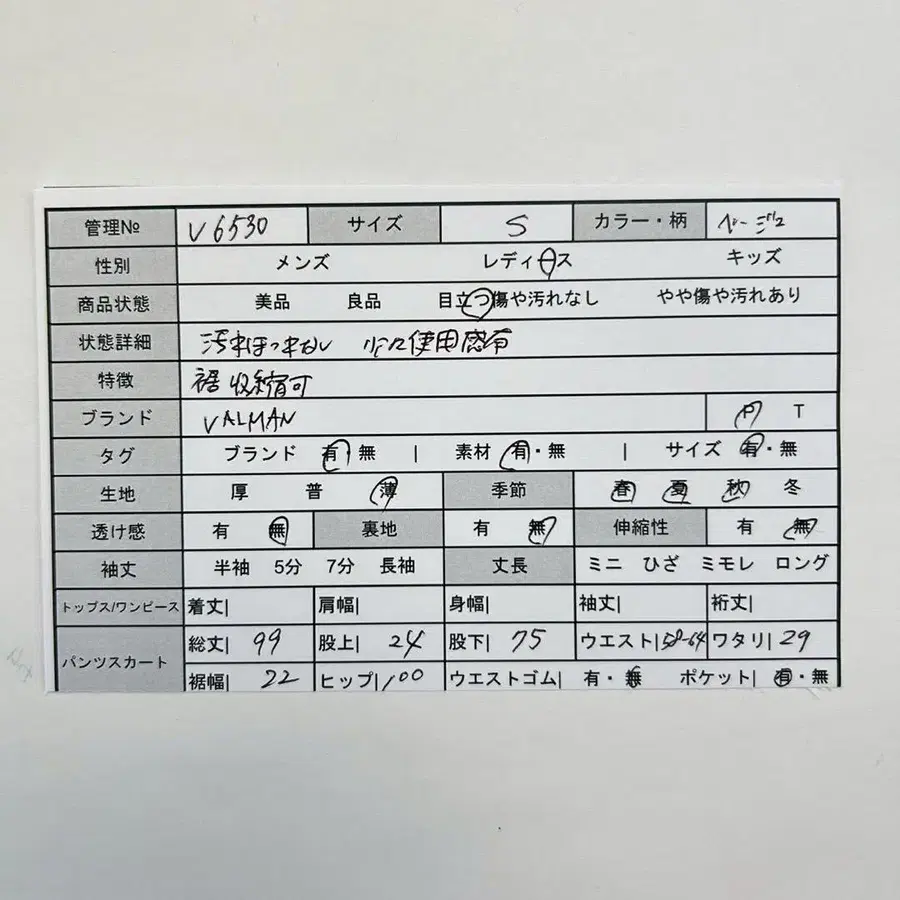 管理№ V6530 サイズ S カラー・柄 ベージュ
性別 メンズ レディース キッズ
商品状態 美品 良品 目立つ傷や汚れなし やや傷や汚れあり
状態詳細 汚れほつれなし 少々使用感有
特徴 裾収縮可
ブランド VALMAN P T
タグ ブランド 有・無 | 素材 有・無 | サイズ 有・無
生地 厚 普 薄 季節 春 夏 秋 冬
透け感 有 無 裏地 有 無 伸縮性 有 無
袖丈 半袖 5分 7分 長袖 丈長 ミニ ひざ ミモレ ロング
トップス/ワンピース 着丈| 肩幅| 身幅| 袖丈| 裄丈|
パンツスカート 総丈| 99 股上| 24 股下| 75 ウエスト| 58-64 ワタリ| 29
裾幅| 22 ヒップ| 100 ウエストゴム| 有・無 ポケット| 有・無